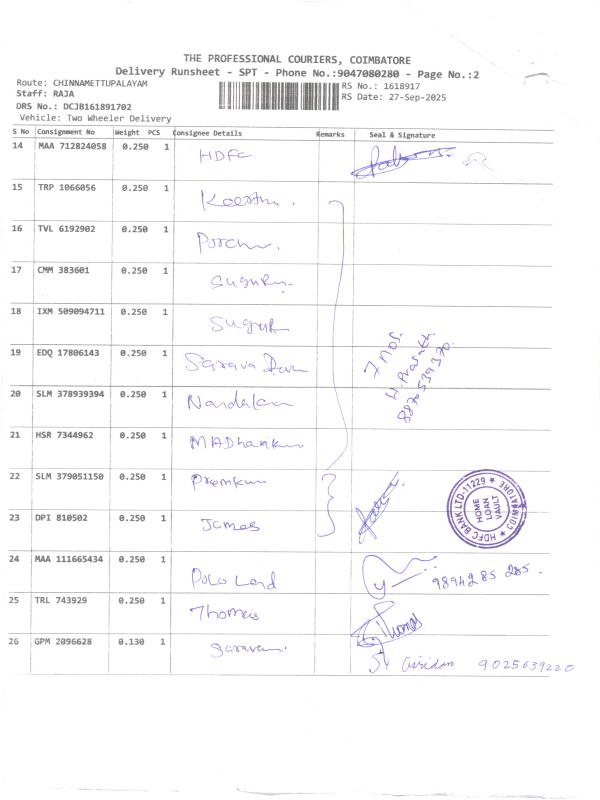 THE PROFESSIONAL COURIERS, COIMBATORE
Delivery Runsheet - SPT - Phone No.:9047080280 - Page No.:2
Route: CHINNAMETTUPALAYAM
Staff: RAJA
DRS No.: DCJB161891702
Vehicle: Two Wheeler Delivery
RS No.: 1618917
RS Date: 27-Sep-2025
S No Consignment No Weight PCS Consignee Details Remarks Seal & Signature
14 MAA 712824058 0.250 1 HDFC
15 TRP 1066056 0.250 1 Keerthi.
16 TVL 6192902 0.250 1
17 CMM 383601 0.250 1
18 IXM 509094711 0.250 1
19 EDQ 17806143 0.250 1
7 NOS.
H. Prasath
20 SLM 378939394 0.250 1
21 HSR 7344962 0.250 1
22 SLM 379051150 0.250 1 Premkum
23 DPI 810502 0.250 1 James
HDFC BANK LTD-11229 ★ COIMBATORE ★
HOME
LOAN
VAULT
24 MAA 111665434 0.250 1 Polo Land 98942 85 285.
25 TRL 743929 0.250 1 Thomas Thomas
26 GPM 2096628 0.130 1 Saravan. Giridan 9025639220